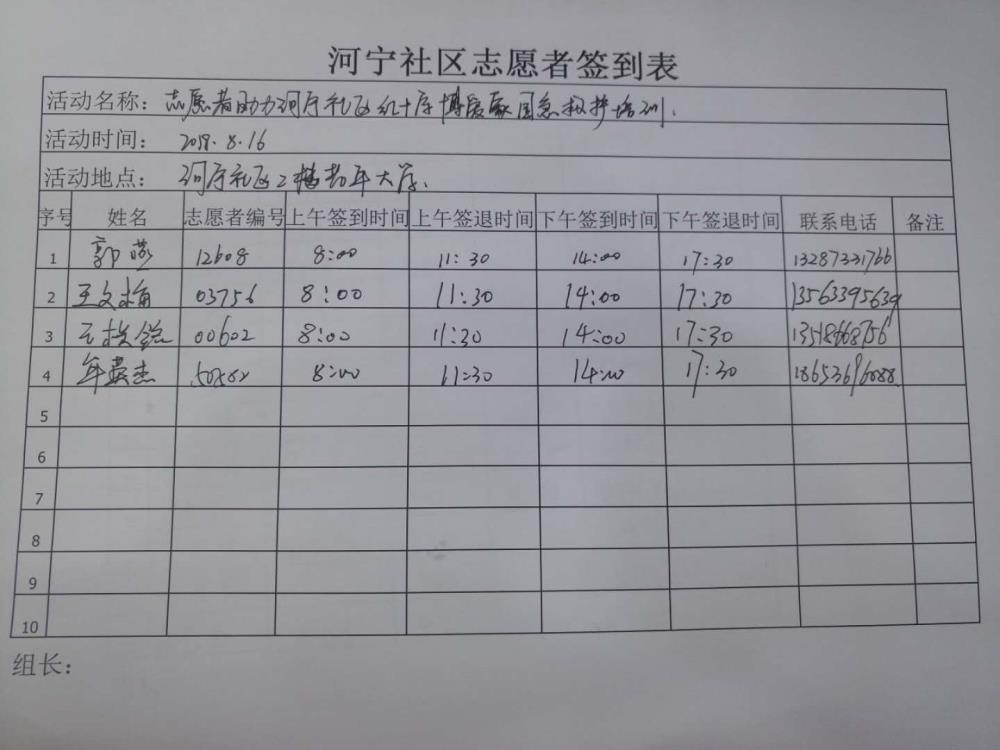 河宁社区志愿者签到表
活动名称：志愿者助力河宁社区红十字博爱家园急救护培训.
活动时间： 2018.8.16
活动地点： 河宁社区2楼老年大学.
序号 姓名 志愿者编号 上午签到时间 上午签退时间 下午签到时间 下午签退时间 联系电话 备注
1 郭燕 12608 8:00 11:30 14:00 17:30 13287331766
2 王文 03756 8:00 11:30 14:00 17:30 13563395639
3 00602 8:00 11:30 14:00 17:30
4 8:00 11:30 14:00 17:30
5
6
7
8
9
10
组长：